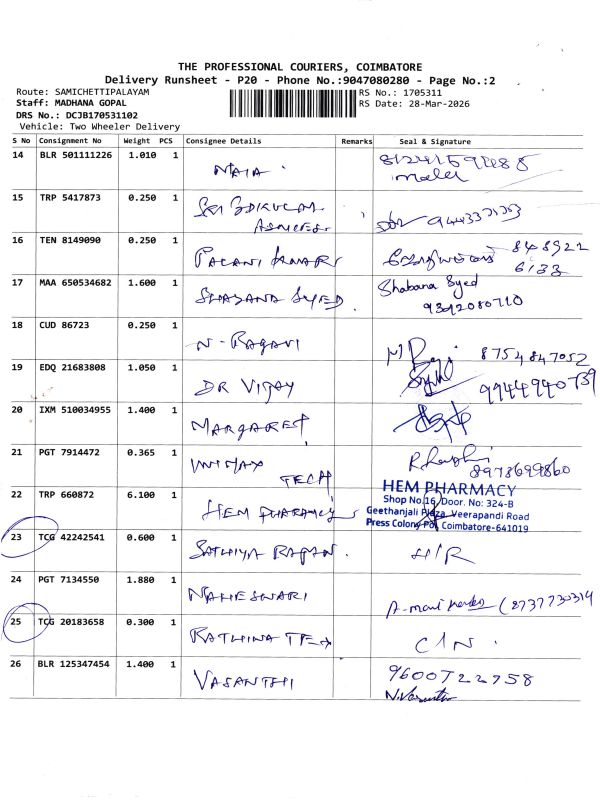 THE PROFESSIONAL COURIERS, COIMBATORE
Delivery Runsheet - P20 - Phone No.:9047080280 - Page No.:2
Route: SAMICHETTIPALAYAM RS No.: 1705311
Staff: MADHANA GOPAL RS Date: 28-Mar-2026
DRS No.: DCJB170531102
Vehicle: Two Wheeler Delivery
S No Consignment No Weight PCS Consignee Details Remarks Seal & Signature
14 BLR 501111226 1.010 1 MALA
15 TRP 5417873 0.250 1 SRI
16 TEN 8149090 0.250 1 PALANI KUMAR 848922
6133
17 MAA 650534682 1.600 1 SHABANA SYED Shabana Syed
9392080710
18 CUD 86723 0.250 1 N-RAGAVI 8754847052
19 EDQ 21683808 1.050 1 DR VIJAY 9944940739
20 IXM 510034955 1.400 1 MARGARET
21 PGT 7914472 0.365 1 TECH 8978699860
22 TRP 660872 6.100 1 HEM PHARMACY
HEM PHARMACY
Shop No.16, Door. No: 324-B
Geethanjali Plaza, Veerapandi Road
Press Colony Po, Coimbatore-641019
23 TCG 42242541 0.600 1 SATHIYA RAJAN. H/R
24 PGT 7134550 1.880 1 MAHESWARI
25 TCG 20183658 0.300 1 RATHINA TEX C/N.
26 BLR 125347454 1.400 1 VASANTHI 9600722758